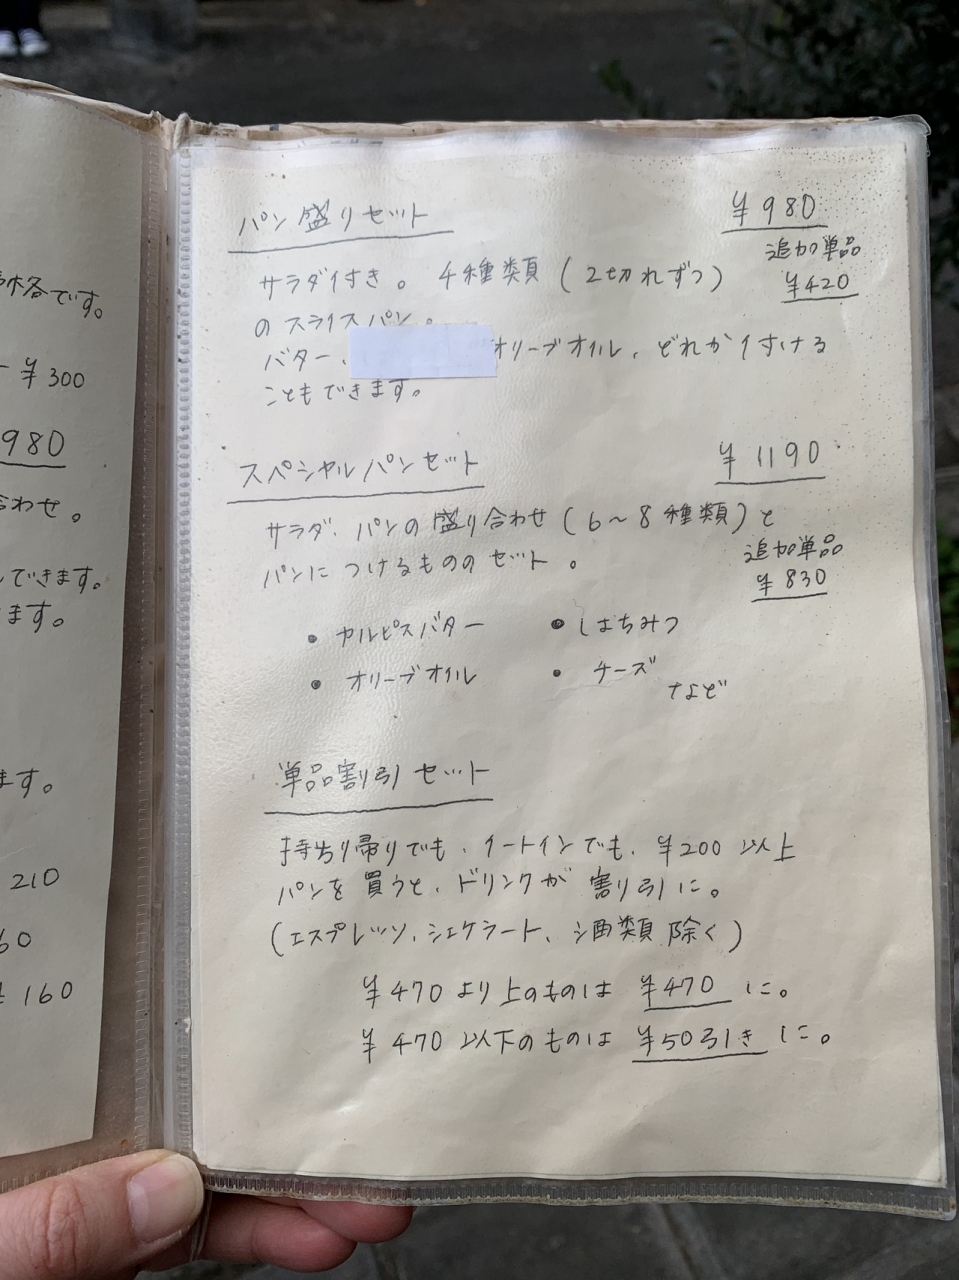 格です。
¥300
980
合わせ。
できます。
ます。
ます。
210
60
160
パン盛りセット ¥980
追加単品
¥420
サラダ付き。4種類(2切れずつ)
のスライスパン。
バター、オリーブオイル、どれか付ける
こともできます。
スペシャルパンセット ¥1190
サラダ、パンの盛り合わせ(6〜8種類)と
パンにつけるもののセット。
追加単品
¥830
• カルピスバター • はちみつ
• オリーブオイル • チーズ
など
単品割引セット
持ち帰りでも、イートインでも、¥200以上
パンを買うと、ドリンクが割り引に。
(エスプレッソ、シェケラート、酒類除く)
¥470より上のものは ¥470 に。
¥470以下のものは ¥50引き に。